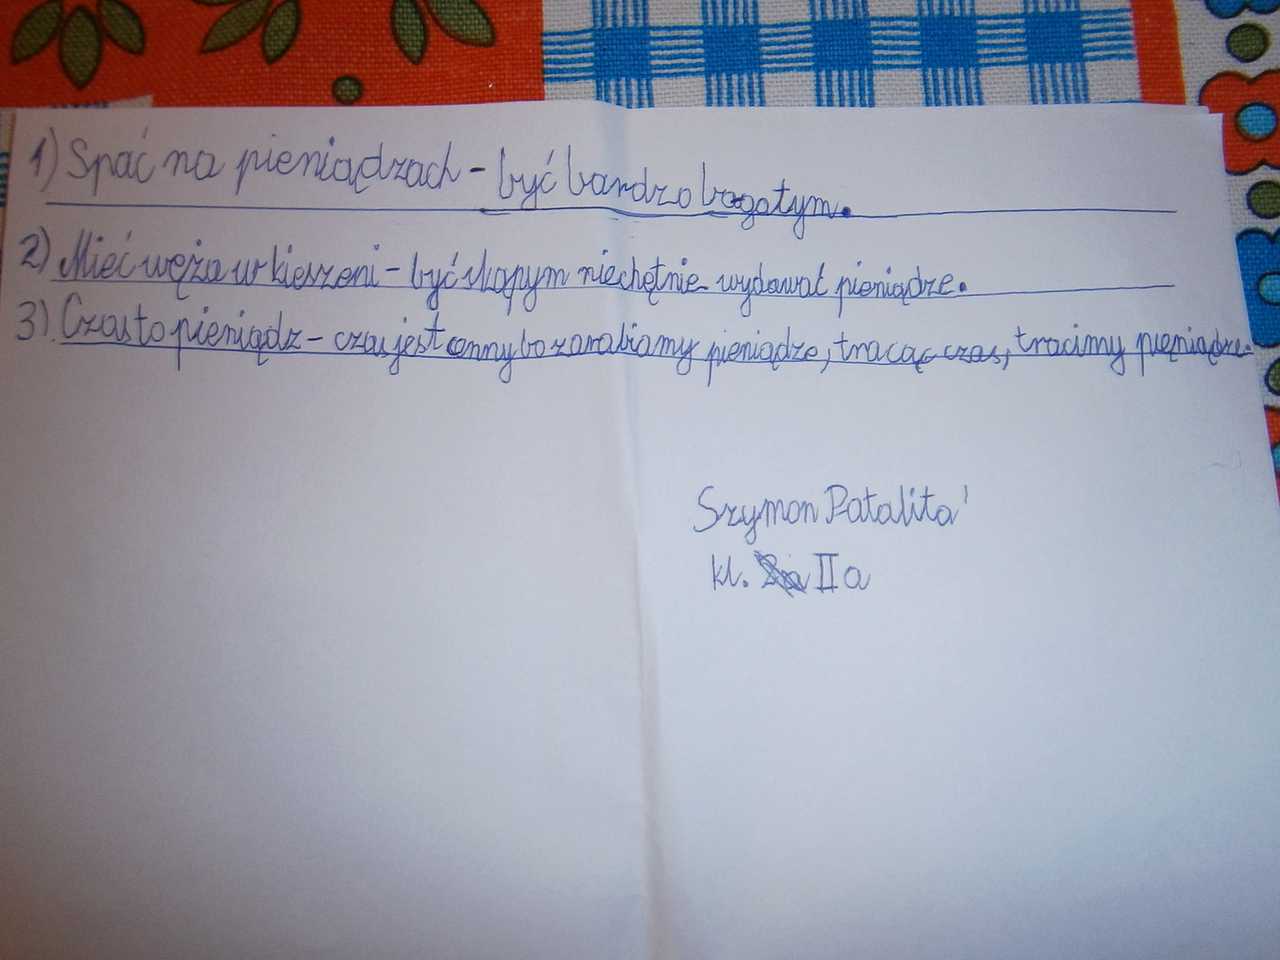 1) Spać na pieniądzach - być bardzo bogatym.
2) Mieć węża w kieszeni - być skąpym niechętnie wydawać pieniądze.
3). Czas to pieniądz - czas jest cenny bo zarabiamy pieniądze, tracąc czas, tracimy pieniądze.
Szymon Patalita
kl. IIa